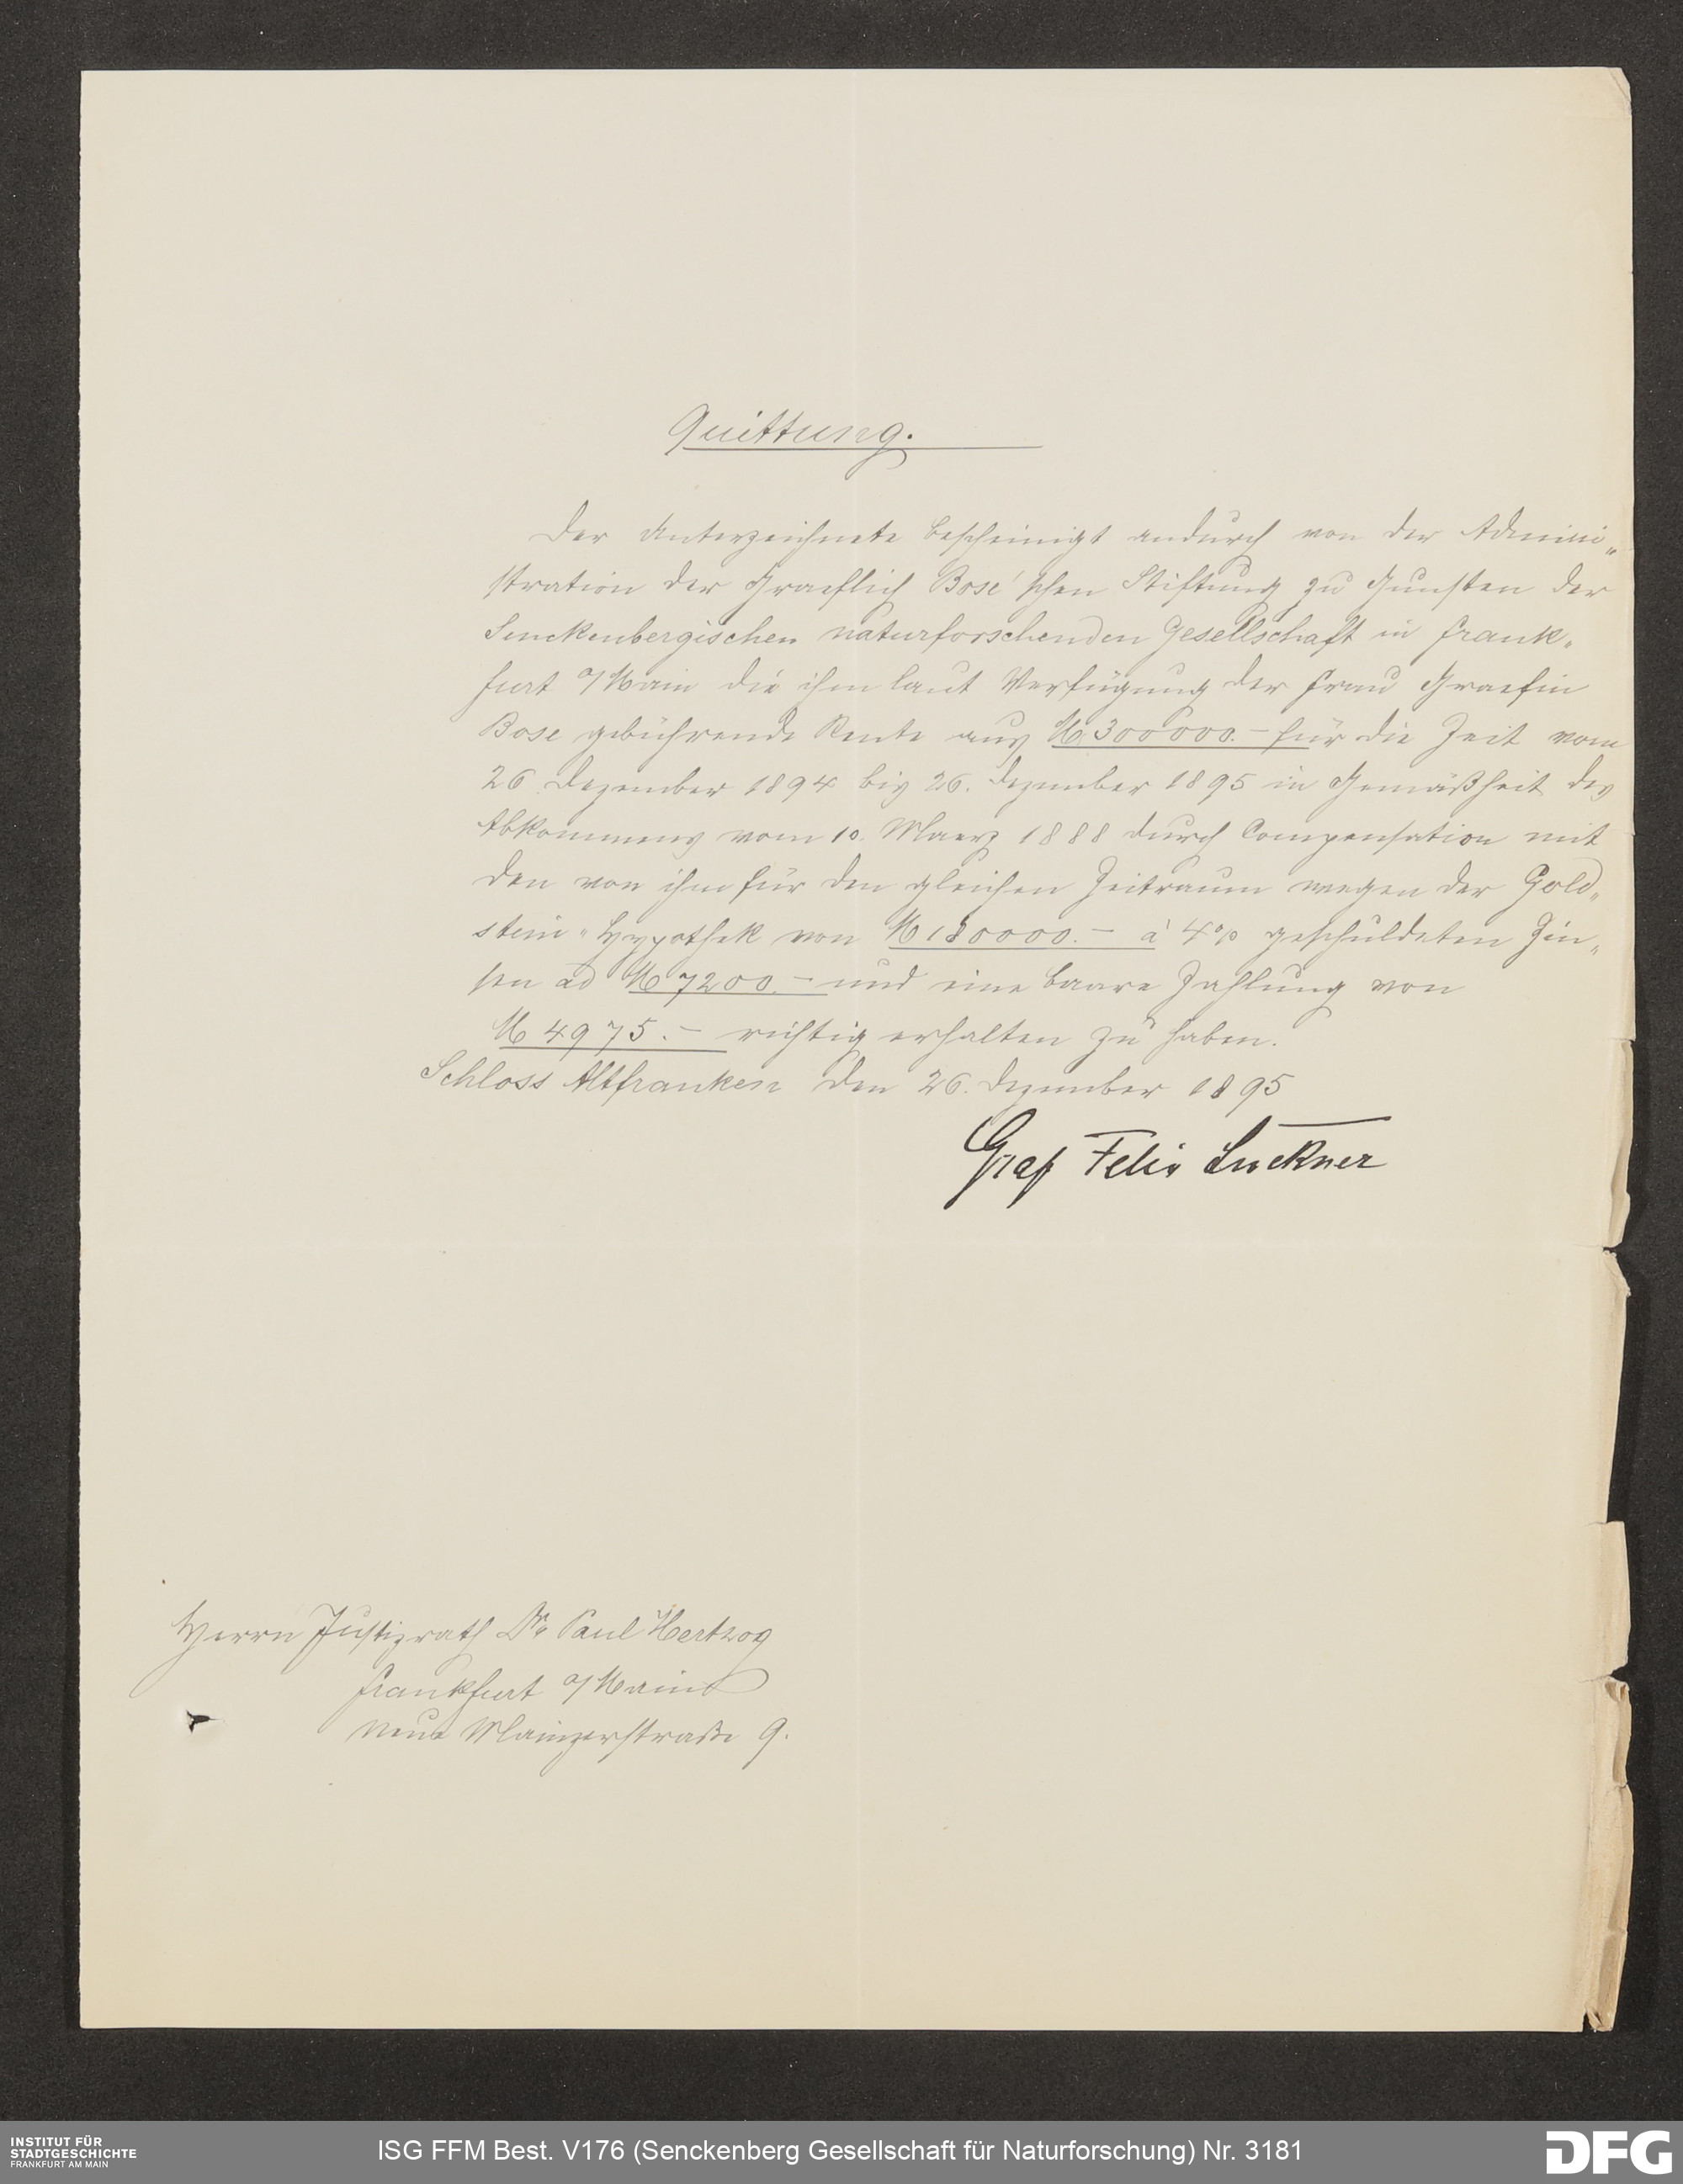 Quittung.
Der Unterzeichnete bescheinigt andurch von der Admini„
stration der Graeflich Bose'schen Stiftung zu Gunsten der
Senckenbergischen naturforschenden Gesellschaft in Frank„
furt a/Main die ihm laut Verfügung der Frau Graefin
Bose gebührende Rente aus M 300000.– für die Zeit vom
26. Dezember 1894 bis 26. Dezember 1895 in Gemäßheit des
Abkommens vom 10. Maerz 1888 durch Compensation mit
den von ihm für den gleichen Zeitraum wegen der Gold„
stein„Hypothek von M 180000.– à 4% geschuldeten Zin„
sen ad M 7200.– und eine baare Zahlung von
M 4975.– richtig erhalten zu haben.
Schloss Altfranken den 26. Dezember 1895
Graf Felix Luckner
Herrn Justizrath Dr Paul Hertzog
Frankfurt a/Main
Neue Mainzerstraße 9.
INSTITUT FÜR
STADTGESCHICHTE
FRANKFURT AM MAIN
ISG FFM Best. V176 (Senckenberg Gesellschaft für Naturforschung) Nr. 3181
DFG